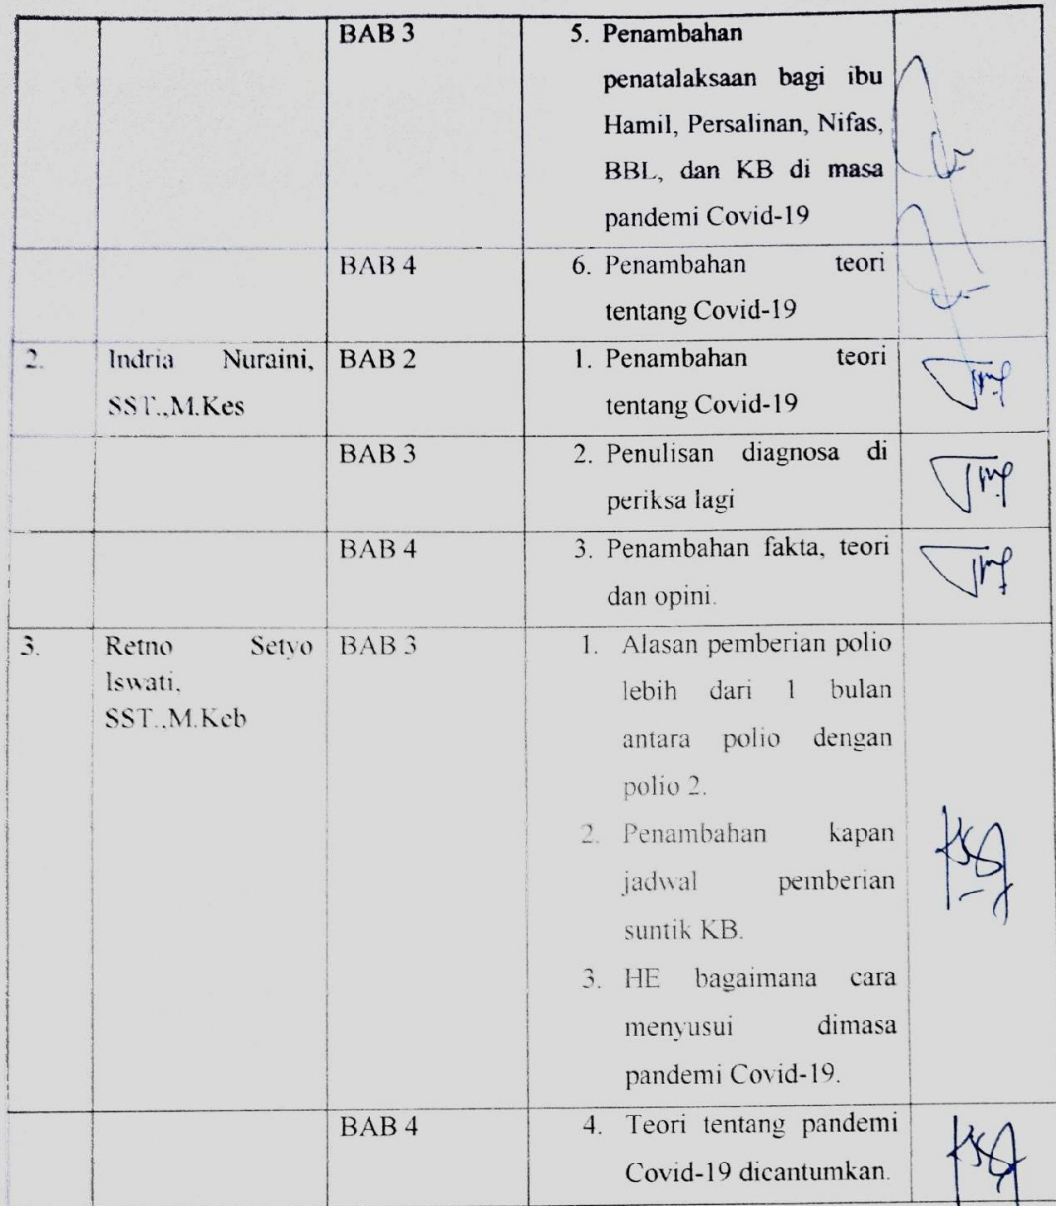 BAB 3
5. Penambahan
penatalaksaan bagi ibu
Hamil, Persalinan, Nifas,
BBL, dan KB di masa
pandemi Covid-19
BAB 4
6. Penambahan teori
tentang Covid-19
2. Indria Nuraini,
SST.,M.Kes
BAB 2
1. Penambahan teori
tentang Covid-19
BAB 3
2. Penulisan diagnosa di
periksa lagi
BAB 4
3. Penambahan fakta, teori
dan opini.
3. Retno Setyo
Iswati,
SST.,M.Keb
BAB 3
1. Alasan pemberian polio
lebih dari 1 bulan
antara polio dengan
polio 2.
2. Penambahan kapan
jadwal pemberian
suntik KB.
3. HE bagaimana cara
menyusui dimasa
pandemi Covid-19.
BAB 4
4. Teori tentang pandemi
Covid-19 dicantumkan.